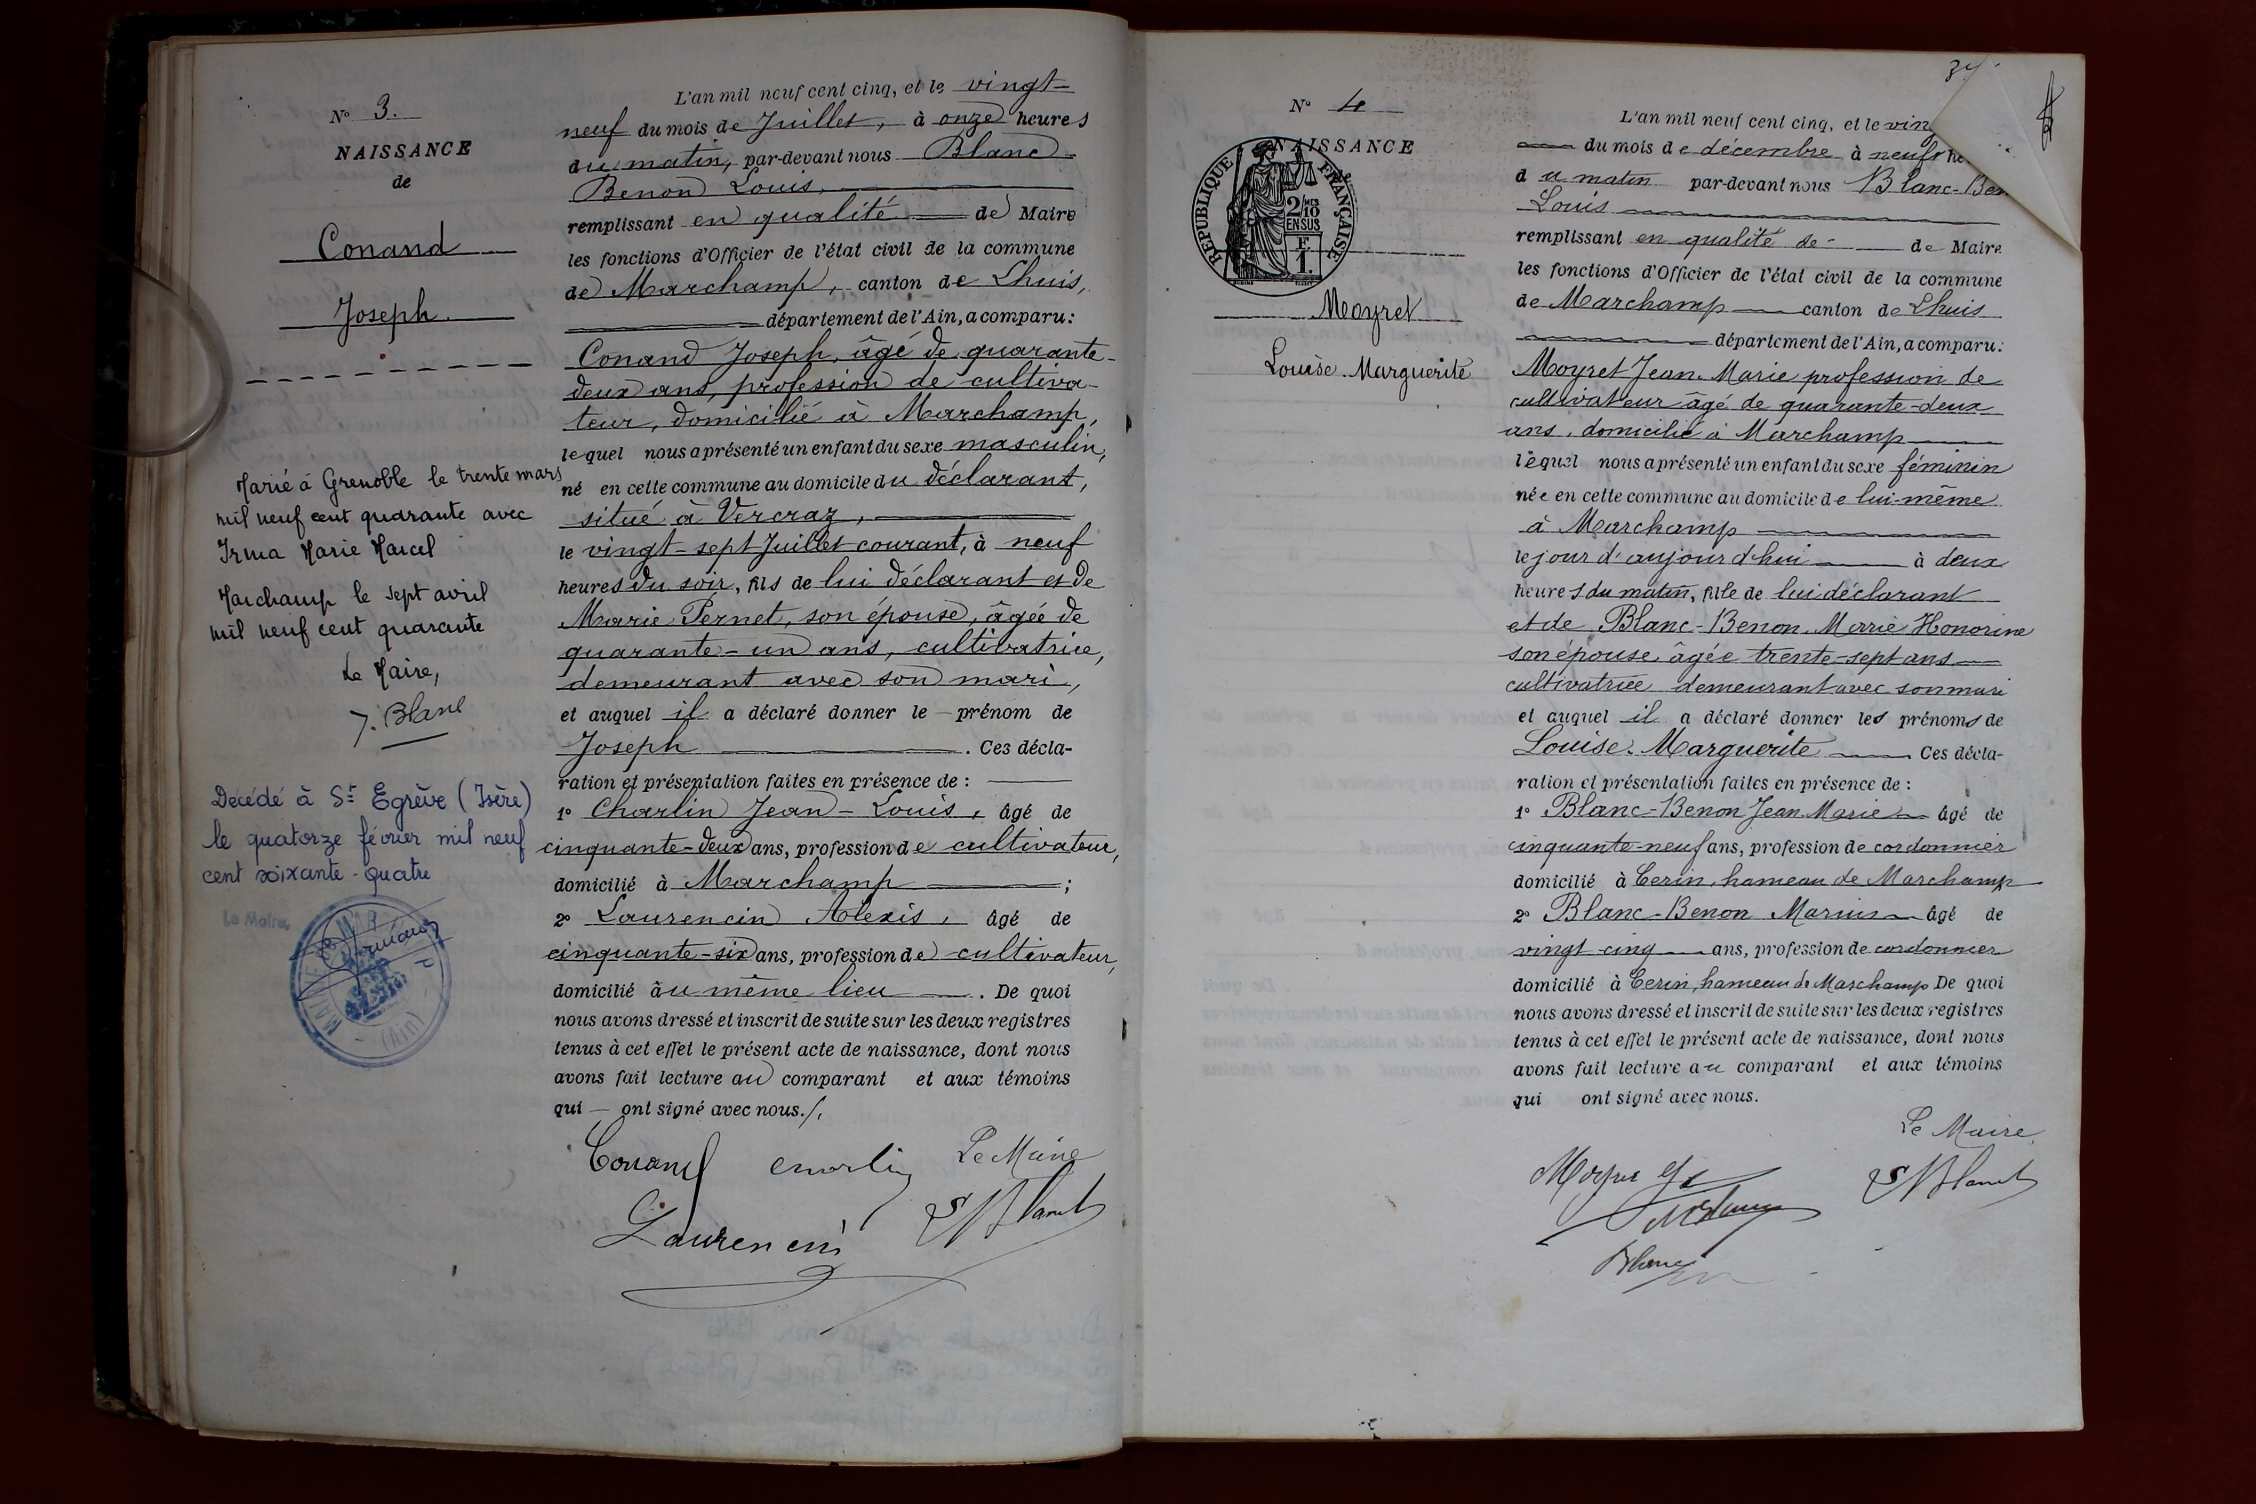 N° 3.
NAISSANCE
de
Conand
Joseph.
Marié à Grenoble le trente mars
mil neuf cent quarante avec
Irma Marie Marcel
Marchamp le sept avril
mil neuf cent quarante
Le Maire,
J. Blanc
Décédé à St Egrève (Isère)
le quatorze février mil neuf
cent soixante-quatre
Le Maire,
L'an mil neuf cent cinq, et le vingt-
neuf du mois de Juillet, à onze heures
du matin, par-devant nous Blanc
Benon Louis
remplissant en qualité de Maire
les fonctions d'Officier de l'état civil de la commune
de Marchamp, canton de Lhuis,
département de l'Ain, a comparu:
Conand Joseph, âgé de quarante-
deux ans, profession de cultiva-
teur, domicilié à Marchamp,
lequel nous a présenté un enfant du sexe masculin,
né en cette commune au domicile du déclarant,
situé à Vercraz,
le vingt-sept Juillet courant, à neuf
heures du soir, fils de lui déclarant et de
Marie Pernet, son épouse, âgée de
quarante-un ans, cultivatrice,
demeurant avec son mari,
et auquel il a déclaré donner le prénom de
Joseph . Ces décla-
ration et présentation faites en présence de :
1° Charlin Jean-Louis, âgé de
cinquante-deux ans, profession de cultivateur,
domicilié à Marchamp ;
2° Laurencin Alexis, âgé de
cinquante-six ans, profession de cultivateur,
domicilié au même lieu . De quoi
nous avons dressé et inscrit de suite sur les deux registres
tenus à cet effet le présent acte de naissance, dont nous
avons fait lecture au comparant et aux témoins
qui — ont signé avec nous./.
Conand Charlin Le Maire
Laurencin Blanc
34
N° 4
NAISSANCE
REPUBLIQUE FRANÇAISE
2/10 MES
EN SUS
F.
1.
Moyret
Louise. Marguerite
L'an mil neuf cent cinq, et le ving
du mois de décembre à neuf he
du matin par-devant nous Blanc-Ben
Louis
remplissant en qualité de - de Maire
les fonctions d'Officier de l'état civil de la commune
de Marchamp canton de Lhuis
département de l'Ain, a comparu:
Moyret Jean. Marie profession de
cultivateur âgé de quarante-deux
ans, domicilié à Marchamp
lequel nous a présenté un enfant du sexe féminin
née en cette commune au domicile de lui-même
à Marchamp
le jour d'aujourd'hui à deux
heures du matin, fille de lui déclarant
et de Blanc-Benon. Marie Honorine
son épouse âgée trente-sept ans
cultivatrice demeurant avec son mari
et auquel il a déclaré donner les prénoms de
Louise. Marguerite Ces décla-
ration et présentation faites en présence de :
1° Blanc-Benon Jean. Marie âgé de
cinquante-neuf ans, profession de cordonnier
domicilié à Cerin, hameau de Marchamp
2° Blanc-Benon Marius âgé de
vingt cinq ans, profession de cordonnier
domicilié à Cerin, hameau de Marchamp De quoi
nous avons dressé et inscrit de suite sur les deux registres
tenus à cet effet le présent acte de naissance, dont nous
avons fait lecture au comparant et aux témoins
qui ont signé avec nous.
Le Maire
Blanc
Blanc